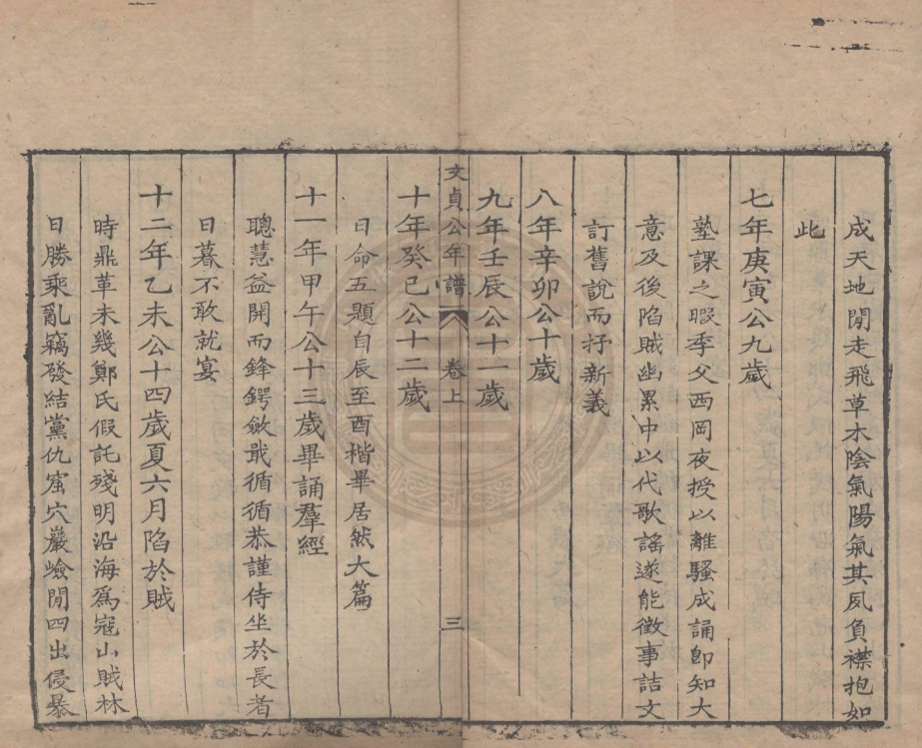 成天地閒走飛草木陰氣陽氣其夙負襟抱如
此
七年庚寅公九歲
塾課之暇季父西岡夜授以離騷成誦卽知大
意及後陷賊幽累中以代歌謠遂能徵事詰文
訂舊說而抒新義
八年辛卯公十歲
九年壬辰公十一歲
文貞公年譜 卷上 三
十年癸巳公十二歲
日命五題自辰至酉楷畢居然大篇
十一年甲午公十三歲畢誦羣經
聰慧益開而鋒鍔斂戢循循恭謹侍坐於長者
日暮不敢就宴
十二年乙未公十四歲夏六月陷於賊
時鼎革未幾鄭氏假託殘明沿海爲寇山賊林
日勝乘亂竊發結黨仇窟穴巖嶮閒四出侵暴